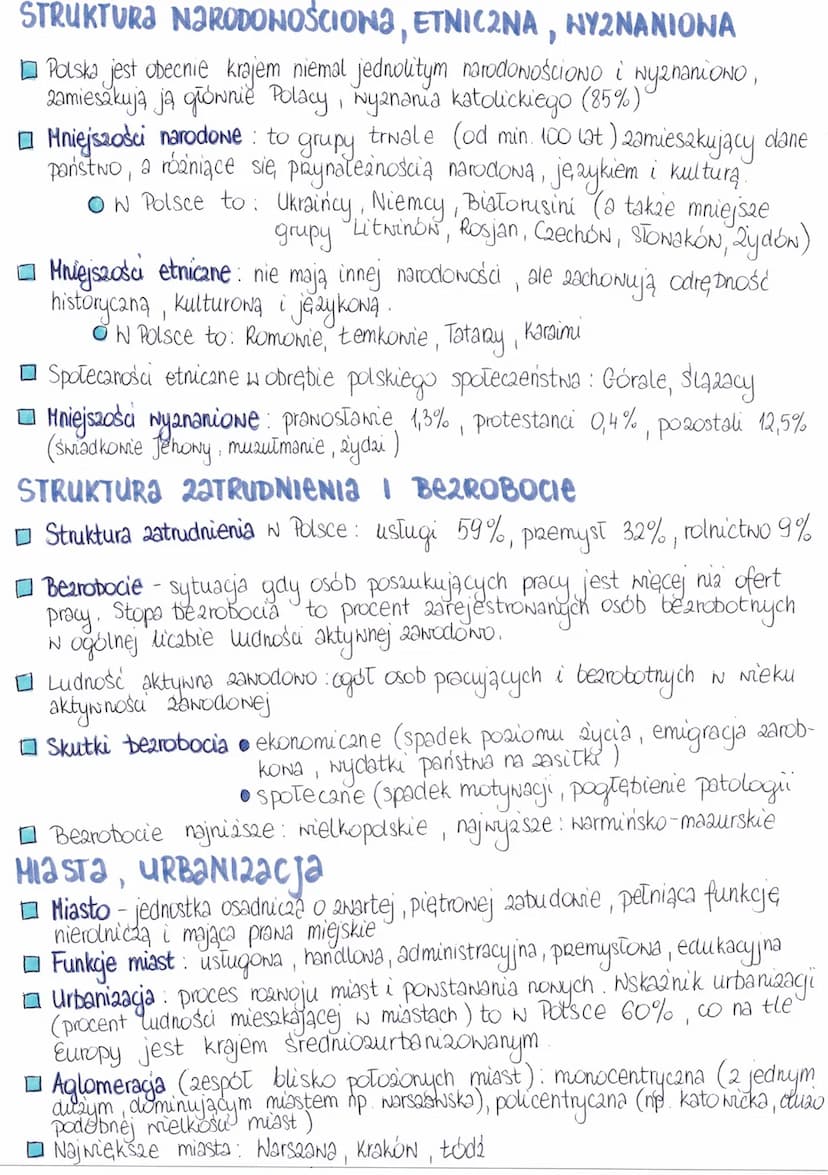 STRUKTURA NARODOWOŚCIOWA, ETNICZNA, WYZNANIOWA
Polska jest obecnie krajem niemal jednolitym narodowościowo i wyznaniowo,
zamieszkują ją głównie Polacy, wyznania katolickiego (85%)
Mniejszości narodowe: to grupy trwale (od min. 100 lat) zamieszkujący dane
państwo, a różniące się przynależnością narodową, językiem i kulturą.
W Polsce to: Ukraińcy, Niemcy, Białorusini (a także mniejsze
grupy Litwinów, Rosjan, Czechów, Słowaków, Żydów)
Mniejszości etniczne: nie mają innej narodowości, ale zachowują odrębność
historyczną, kulturową i językową.
W Polsce to: Romowie, Łemkowie, Tatarzy, Karaimi
Społeczności etniczne w obrębie polskiego społeczeństwa: Górale, Ślązacy
Mniejszości wyznaniowe: prawosławie 1,3%, protestanci 0,4%, pozostali 12,5%
(świadkowie Jehowy, muzułmanie, żydzi)
STRUKTURA ZATRUDNIENIA I BEZROBOCIE
Struktura zatrudnienia w Polsce: usługi 59%, przemysł 32%, rolnictwo 9%
Bezrobocie - sytuacja gdy osób poszukujących pracy jest więcej niż ofert
pracy. Stopa bezrobocia to procent zarejestrowanych osób bezrobotnych
w ogólnej liczbie ludności aktywnej zawodowo.
Ludność aktywna zawodowo: ogół osób pracujących i bezrobotnych w wieku
aktywności zawodowej
Skutki bezrobocia • ekonomiczne (spadek poziomu życia, emigracja zarob-
kowa, wydatki państwa na zasiłki)
• społeczne (spadek motywacji, pogłębienie patologii
Bezrobocie najniższe: wielkopolskie, najwyższe: warmińsko-mazurskie
MIASTA, URBANIZACJA
Miasto - jednostka osadnicza o zwartej, piętrowej zabudowie, pełniąca funkcję
nierolniczą i mająca prawa miejskie
Funkcje miast: usługowa, handlowa, administracyjna, przemysłowa, edukacyjna
Urbanizacja: proces rozwoju miast i powstawania nowych. Wskaźnik urbanizacji
(procent ludności mieszkającej w miastach) to w Polsce 60%, co na tle
Europy jest krajem średniozurbanizowanym.
Aglomeracja (zespół blisko położonych miast): monocentryczna (z jednym
dużym, dominującym miastem np. warszawska), policentryczna (np. katowicka, dużo
podobnej wielkości miast)
Największe miasta: Warszawa, Kraków, Łódź